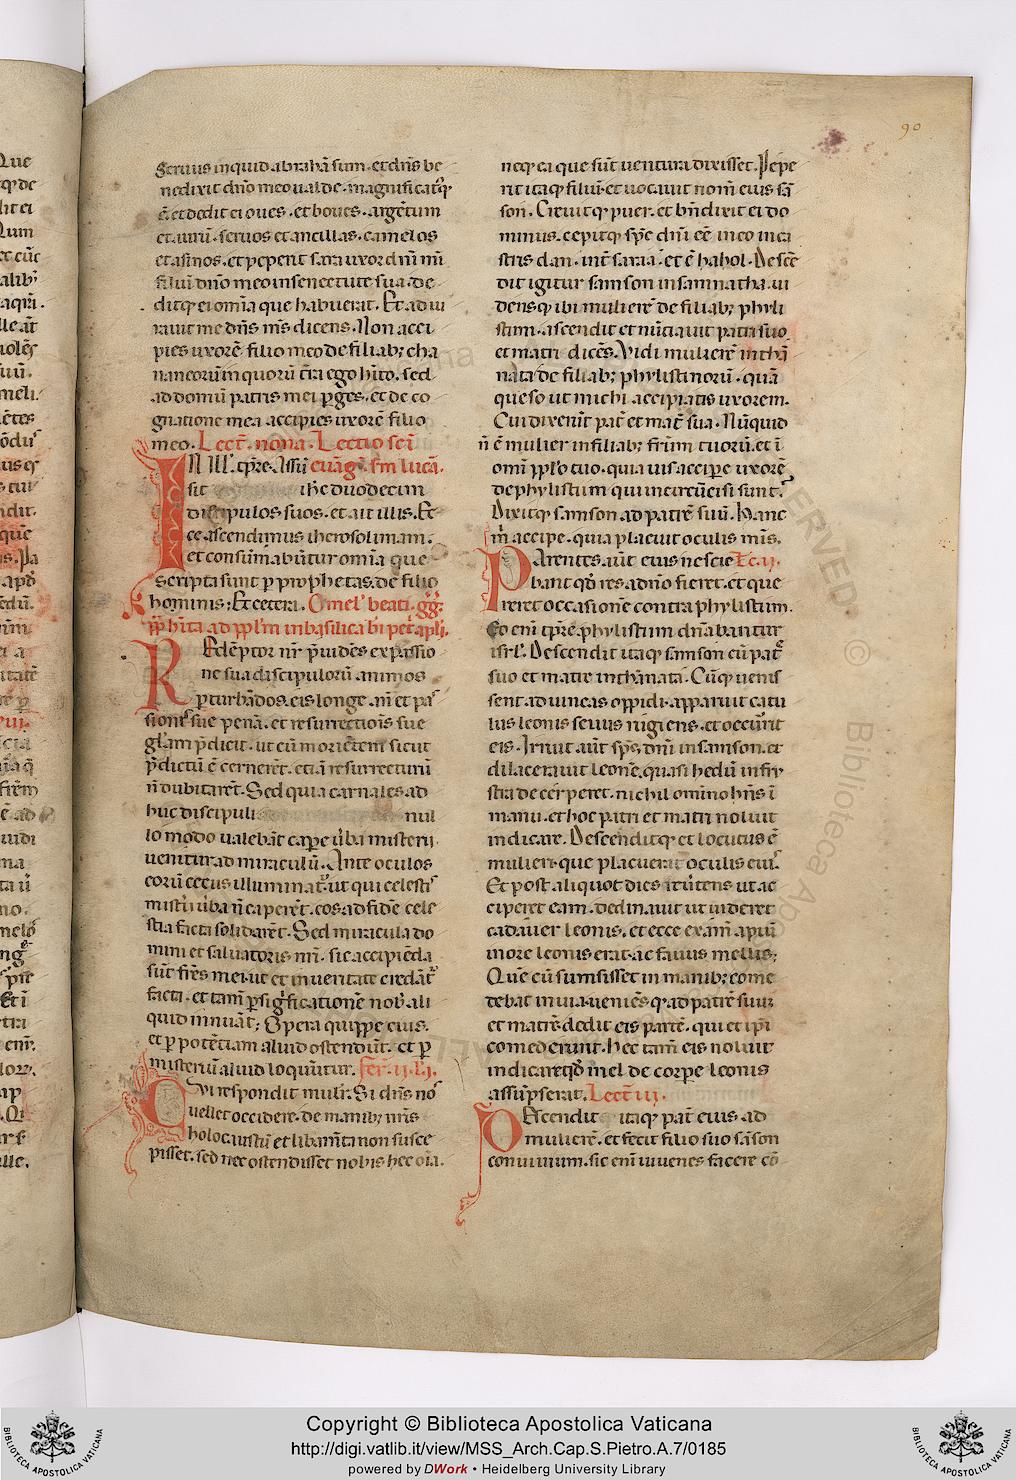 90
Seruus inquid abrahã sum. et dñs be
nedixit dño meo ualde. magnificatq;
ẽ. et dedit ei oues. et boues. argẽtum
et aurũ. seruos et ancillas. camelos
et asinos. et peperit sara uxor dñi mi
filiũ dño meo in senectute sua. de
ditq; ei omĩa que habuerat. Et adiu
rauit me dñs ms dicens. Non acci
pies uxorẽ filio meo de filiab; cha
naneorũ in quorũ tr̃a ego hito. sed
ad domũ patris mei pges. et de co
gnatione mea accipies uxorẽ filio
meo. Lect̃. nona. Lectio sc̃i
euãg. sm lucã.
IN Ill'. tpre. Assũ
sit ihc duodecim
discipulos suos. et ait illis. Ec
ce ascendimus iherosolimam.
et consũmabũtur omĩa que
scripta sunt p prophetas. de filio
hominis; Et cetera. Omel' beati. gg;
hita ad ppl'm in basilica bi petri apl'i.
REdẽptor nr puidẽs ex passio
ne sua discipulorũ animos
pturbãdos. eis longe añ et pas
sionis sue penã. et resurrectiõis sue
gl'am pdicit. ut cũ morietem sicut
pdictũ ẽ cernerẽt. etiã resurrecturũ
ñ dubitarẽt. Sed quia carnales ad
huc discipuli nul
lo modo ualebãt cape uba misterii
uenitur ad miraculũ. Ante oculos
eorũ cecus illuminat̃. ut qui celestis
mistii uba ñ caperẽt. eos ad fidẽ cele
stia facta solidarẽt. Sed miracula do
mini et saluatoris nri. sic accipiẽda
sũt frẽs mei. ut et in ueritate credãt̃
facta. et tam̃ p sigficationẽ nob' ali
quid innuãt; Opera quippe eius.
et p potẽtiam aliud ostendũt. et p
misteriũ aliud loquũtur. fer̃. ii. l'. i.
Cui respondit mulr. Si dñs nos
uellet occidere. de manib; nris
holocaustũ et libamĩta non susce
pisset. sed nec ostendisset nobis hec oĩa.
neq; ea que sũt uentura dixisset. Pepe
rit itaq; filiũ. et uocauit nom̃ eius sã
son. Creuitq; puer. et bñdixit ei do
minus. cepitq; spc dñi eẽ in eo in ca
stris dan. int̃ saraa. et ẽ hahol. Descẽ
dit igitur samson in tamnatha. ui
densq; ibi mulierẽ de filiab; phyli
stim. ascendit et nũtiauit patri suo
et matri dicẽs. Vidi mulierẽ in thã
nata de filiab; phylistinorũ. quã
queso ut michi accipiatis uxorem.
Cui dixer̃t pat̃ et mat̃ sua. Nũquid
ñ ẽ mulier in filiab; frũm tuorũ. et ĩ
omĩ ppl'o tuo. quia uis accipe uxorẽ
de phylistim qui incircũcisi sunt.
Dixitq; samson ad patrẽ suũ. Hanc
m accipe. quia placuit oculis mis.
PArentes. aũt eius nescie Lc. ii.
bant qd res a dño fieret. et que
reret occasionẽ contra phylistim.
Eo enĩ tpre. phylistim dñabantur
isrl'. Descendit itaq; samson cũ pat̃
suo et matre in thãnata. Cũq; uenis
sent ad uineas oppidi. apparuit catu
lus leonis seuus rugiens. et occurrit
eis. Irruit aũt sps dñi in samson. et
dilacerauit leonẽ. quasi hedũ in fru
stra decerperet. nichil omĩno hñs ĩ
manu. et hoc patri et matri noluit
indicare. Descenditq; et locutus ẽ
mulieri. que placuerat oculis eius.
Et post aliquot dies reũtens ut ac
ciperet eam. declinauit ut uideret
cadauer leonis. et ecce exam̃ apiũ
in ore leonis erat. ac fauus mellis;
Quẽ cũ sumsisset in manib; come
debat in uia. ueniẽsq; ad patrẽ suũ
et matrẽ. dedit eis partẽ. qui et ipi
comederunt. hec tam̃ eis noluit
indicare. qd mel de corpe leonis
assũpserat. Lect̃ iii.
DEscendit itaq; pat̃ eius ad
mulierẽ. et fecit filio suo sãson
conuiuium. sic enĩ iuuenes facere cõ
Copyright © Biblioteca Apostolica Vaticana
http://digi.vatlib.it/view/MSS_Arch.Cap.S.Pietro.A.7/0185
powered by DWork • Heidelberg University Library